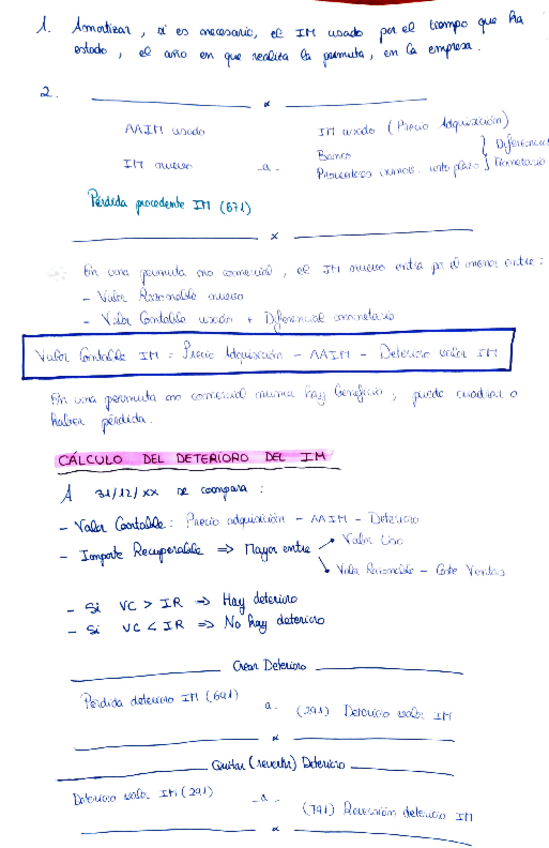 1. Amortizar, si es necesario, el IM usado por el tiempo que ha
estado, el año en que realiza la permuta, en la empresa.
2.
x
AAIM usado
IM usado (Precio Adquisición)
IM nuevo
-a-
Banco
Proveedores inmov. corto plazo
Diferencial
Monetario
Pérdida procedente IM (671)
x
En una permuta no comercial, el IM nuevo entra por el menor entre:
- Valor Razonable nuevo
- Valor Contable usado + Diferencial monetario
Valor Contable IM = Precio Adquisición - AAIM - Deterioro valor IM
En una permuta no comercial nunca hay beneficio, puede cuadrar o
haber pérdida.
CÁLCULO DEL DETERIORO DEL IM
A 31/12/XX se compara:
- Valor Contable: Precio adquisición - AAIM - Deterioro
- Importe Recuperable ⇒ Mayor entre
Valor Uso
Valor Razonable - Coste Ventas
- Si VC > IR ⇒ Hay deterioro
- Si VC < IR ⇒ No hay deterioro
Crear Deterioro
Pérdida deterioro IM (691)
a.
(291) Deterioro valor IM
x
Quitar (revertir) Deterioro
Deterioro valor IM (291)
-a-
(791) Reversión deterioro IM
x